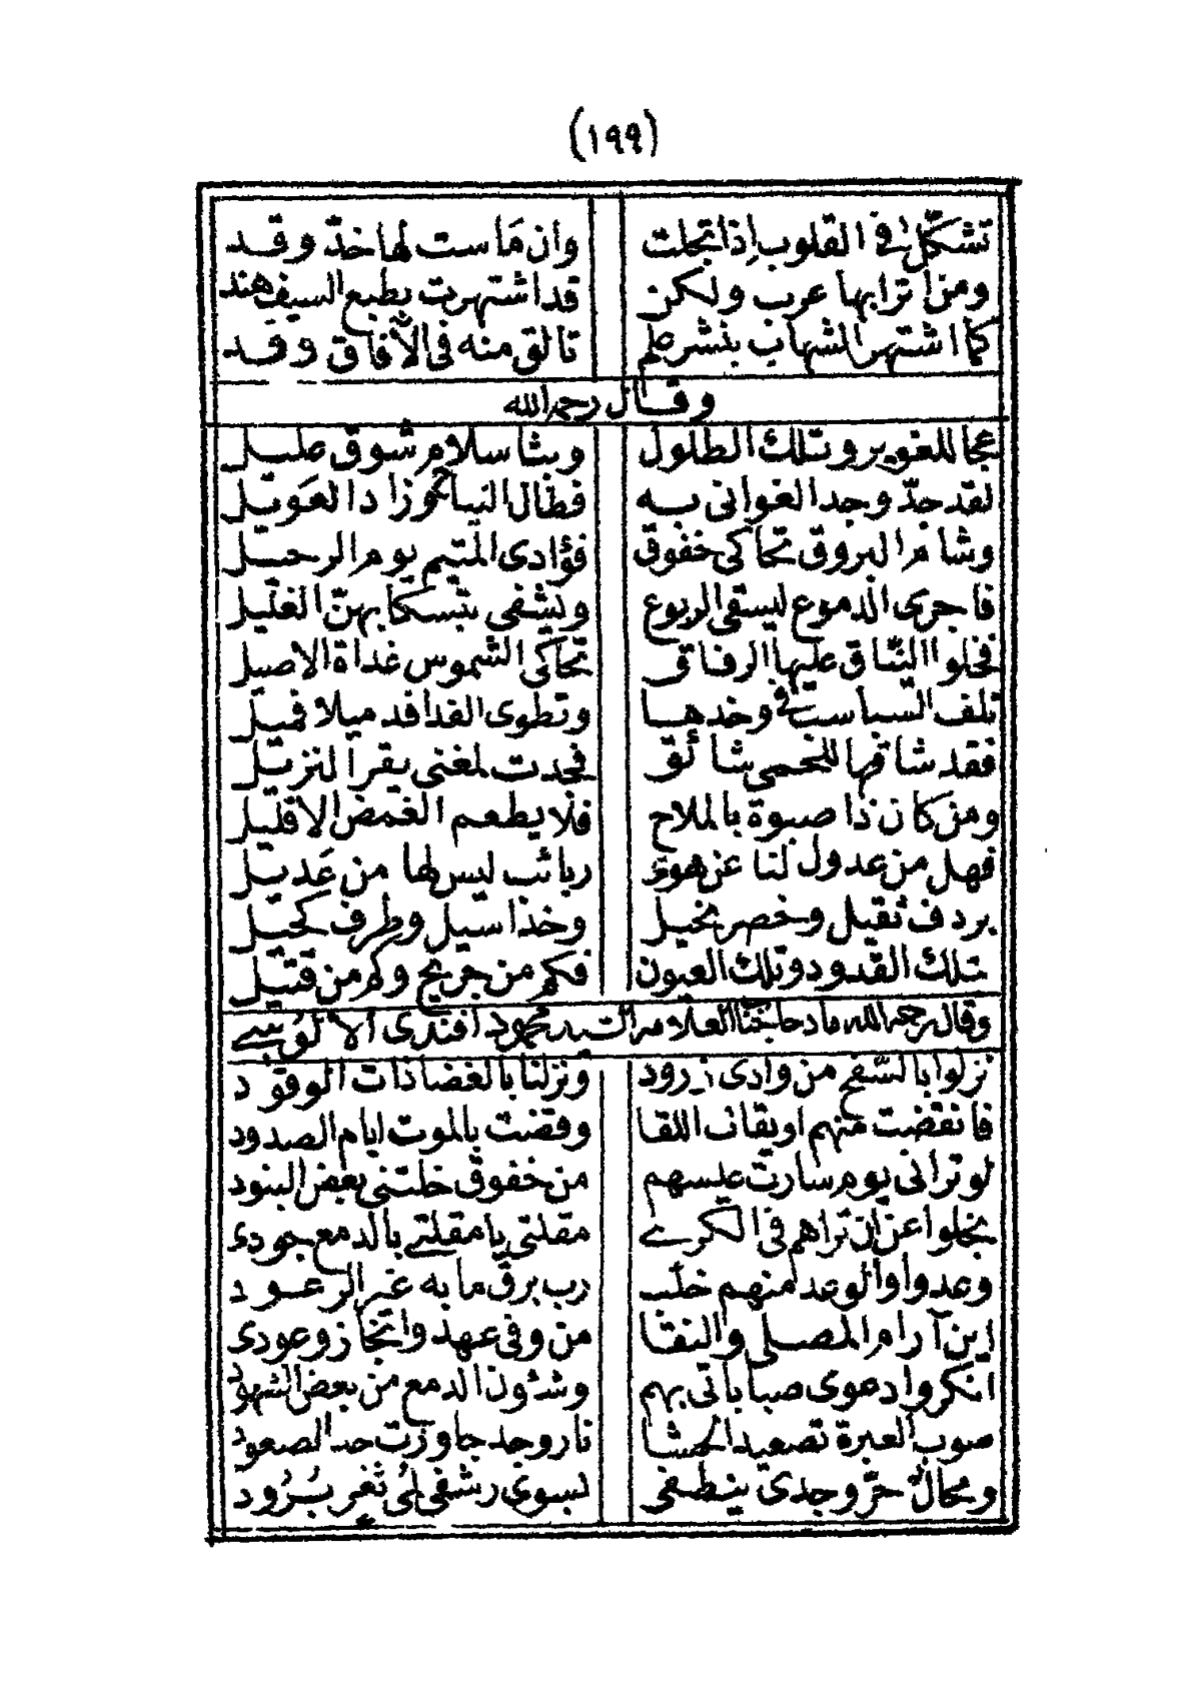 (١٩٩)
تشكّل في القلوب إذا تجلت وان مَاست لها خدّ وقد
ومن اترابها عرب ولكن قد اشتهرت بطبع السيف هند
كما اشتهر الشهاب بنشر علم تالق منه في الآفاق وقد
وقال رحمه الله
عجا للغوير وتلك الطلول وبثا سلام شوق طليل
لقد جدّ وجد الغواني به فطال النياح وزاد العويل
وشام البروق تحاكي خفوق فؤادي المتيم يوم الرحيل
فاجرى الدموع ليسقى الربوع ويشفى بتسكابهنّ الغليل
فخلوا النياق عليها الرفاق تحاكي الشموس غداة الاصيل
تلف السباسب في وخدها وتطوى الفدافد ميلا فميل
فقد شاقها للحمى شائق فجدت لمغنى بقرآ لنزيل
ومن كان ذا صبوة بالملاح فلا يطعم الغمض الا قليل
فهل من عدول لنا عن هوى ربائب ليس لها من عَديل
بردف ثقيل وخصر نحيل وخد اسيل وطرف كحيل
بتلك القدود وتلك العيون فكم من جريح وكم من قتيل
وقال رحمه الله مادحا جناب العلامة السيد محمود افندى الآلوسے
نزلوا بالسفح من وادى زرود ونزلنا بالغضا ذات الوقود
فانقضت منهم اويقات اللقا وقضت بالموت ايام الصدود
لو ترانى يوم سارت عيسهم من خفوق خلتنى بعض البنود
بخلوا عن ان تراهم في الكرے مقلتي يا مقلتے بالدمع جودى
وعدوا والوعد منهم خلب رب برق ما به غير الرعود
اين آرام المصلى والنقا من وفى عهد وانجاز وعودى
انكروا دعوى صباباتى بهم وشئون الدمع من بعض الشهود
صوب العبرة تصعيد الحشا نار وجد جاوزت حد الصعود
ومحال حرّ وجدى ينطفى بسوى رشفى لمى ثغر بُرُود